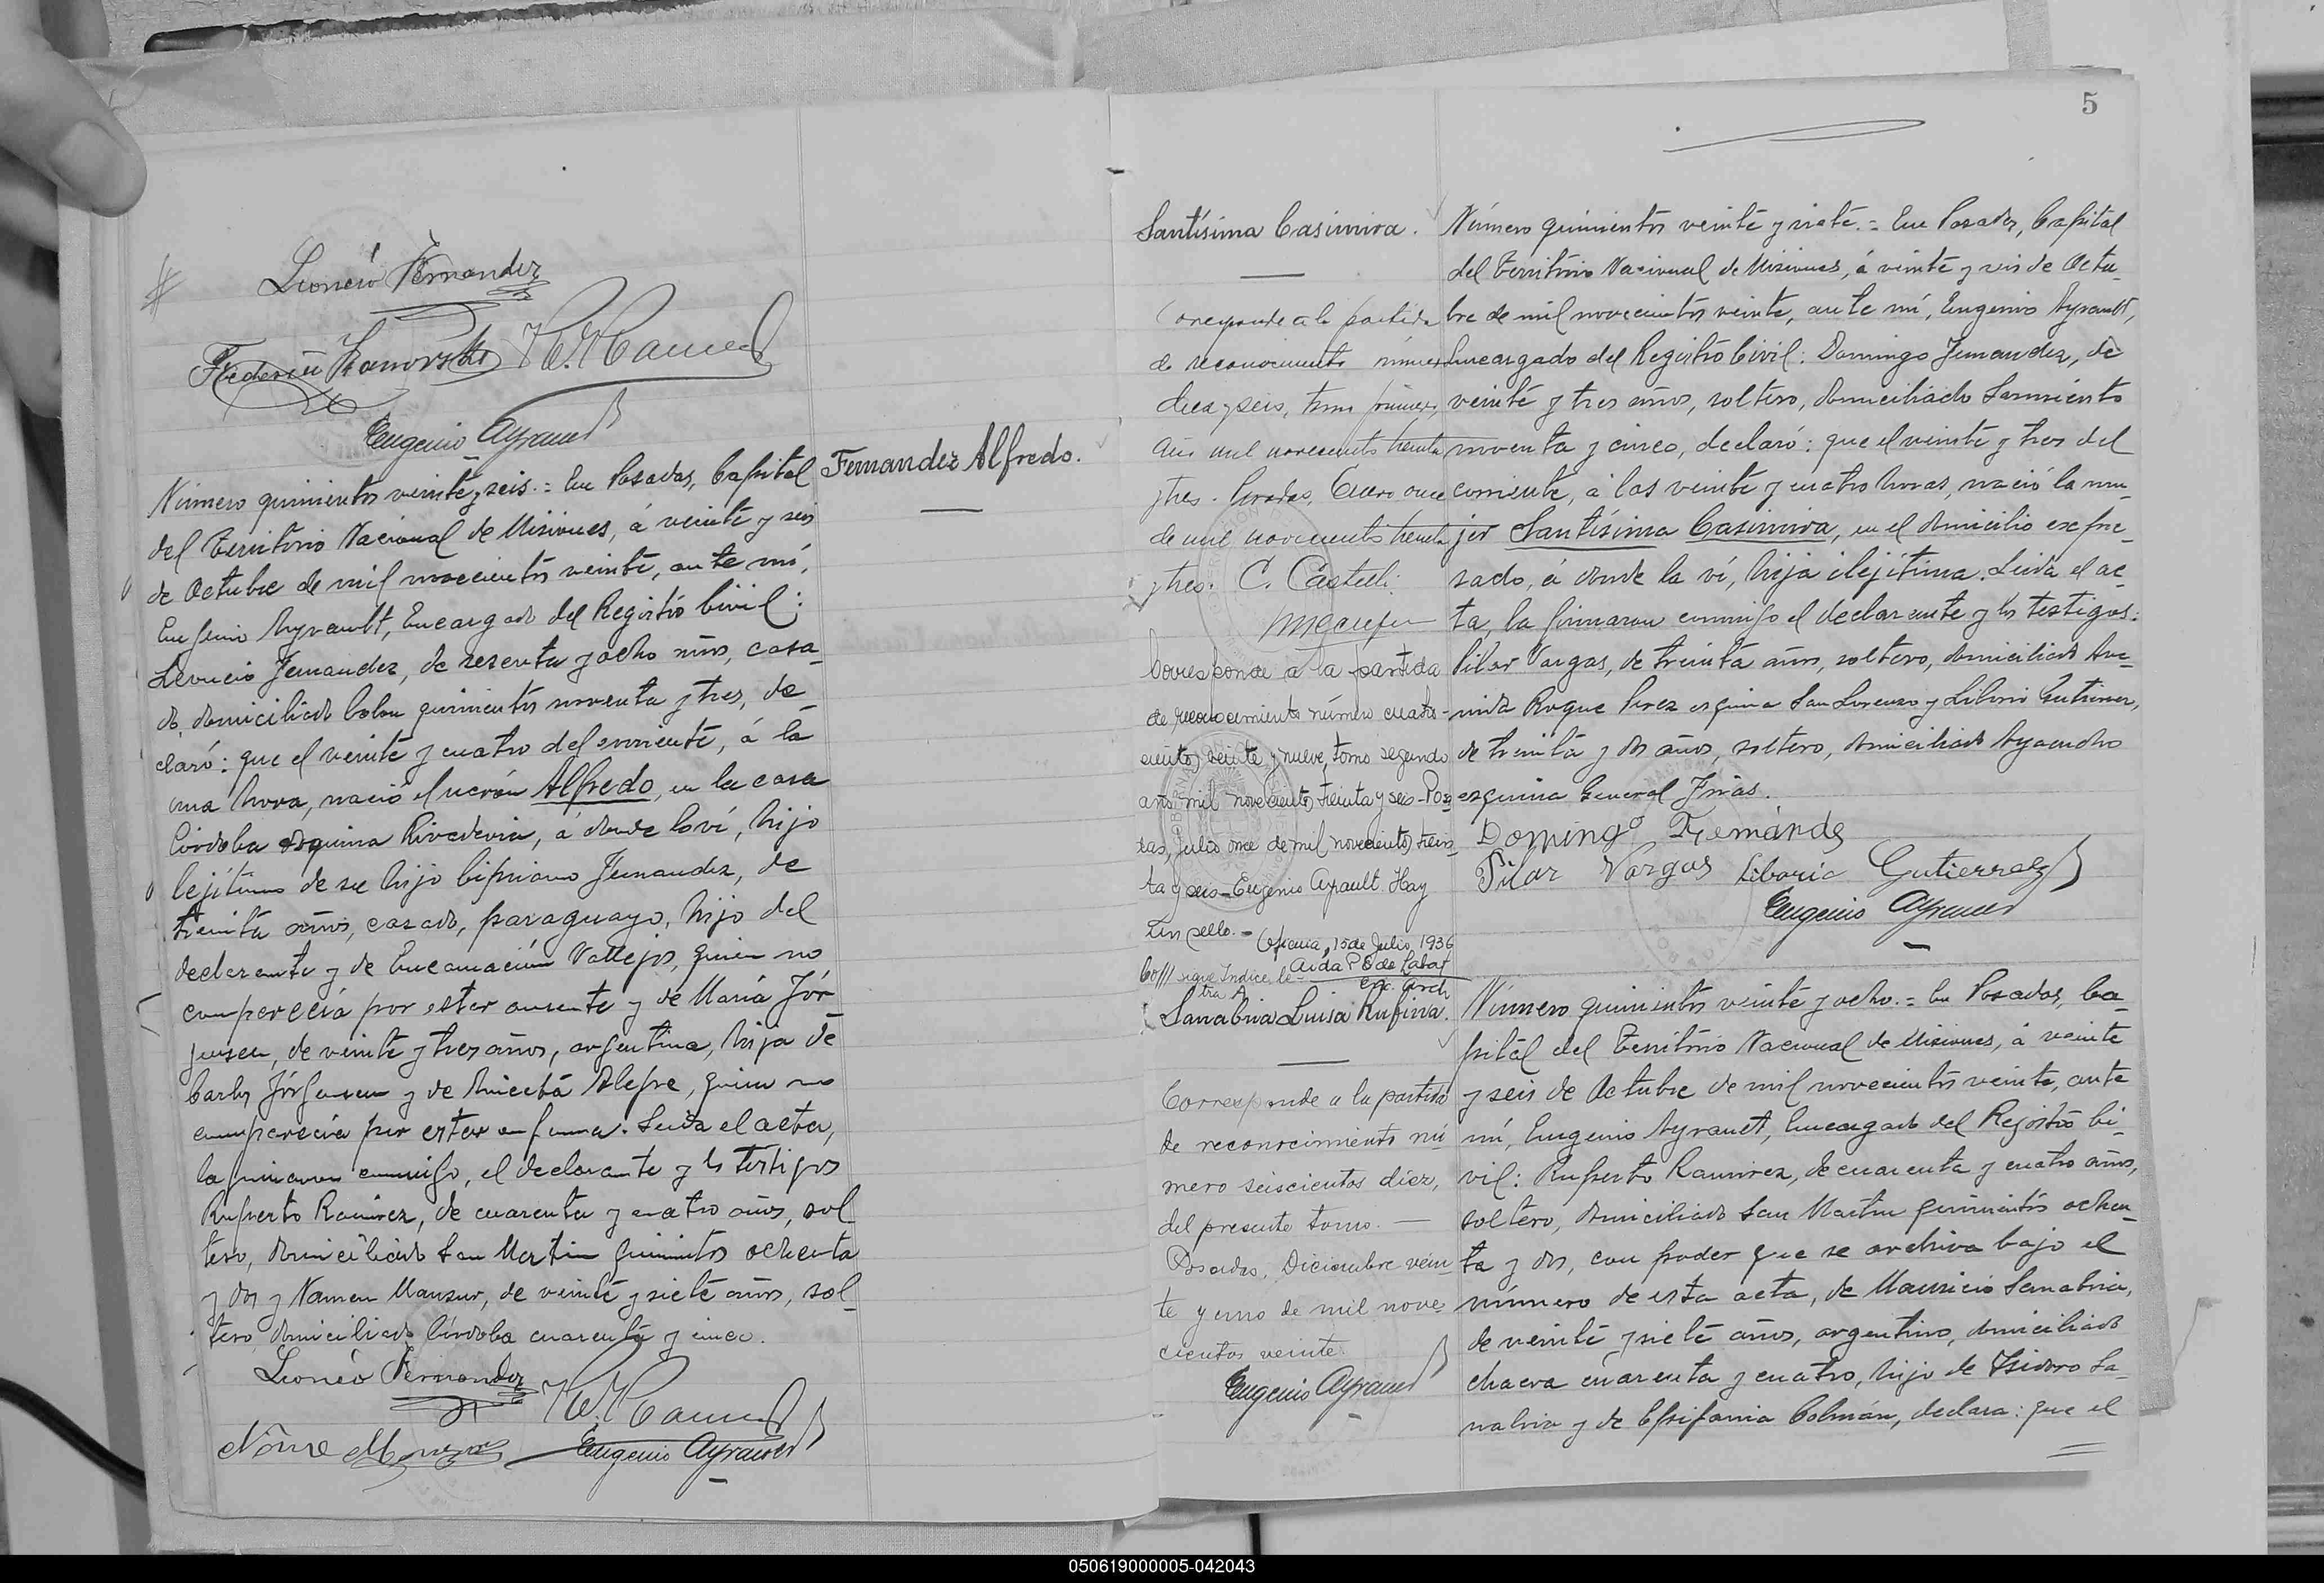 Leoncio Fernandez
Federico
Eugenio Ayrault
Número quinientos veinte y seis.= En Posadas, Capital
Fernandez Alfredo.
del Territorio Nacional de Misiones, á veinte y seis
de Octubre de mil novecientos veinte, ante mí,
Eugenio Ayrault, Encargado del Registro Civil:
Leoncio Fernandez, de sesenta y ocho años, casa-
do, domiciliado Colon quinientos noventa y tres, de-
claró: que el veinte y cuatro del corriente, á la
una hora, nació el varón Alfredo, en la casa
Córdoba esquina Rivadavia, á donde lo ví, hijo
lejítimo de su hijo Cipriano Fernandez, de
treinta años, casado, paraguayo, hijo del
declarante y de Encarnación Vallejos, quien no
comparecía por estar ausente y de María Jór-
gensen, de veinte y tres años, argentina, hija de
Carlos Jórgensen y de Aniceta Alegre, quien no
comparecía por estar enferma. Leida el acta,
la firmaron conmigo, el declarante y los testigos
Ruperto Ramirez, de cuarenta y cuatro años, sol-
tero, domiciliado San Martin quinientos ochenta
y dos y Namen Mansur, de veinte y siete años, sol-
tero, domiciliado Córdoba cuarenta y cinco.
Leoncio Fernandez
Eugenio Ayrault
5
Santísima Casimira.
Corresponde a la partida
de reconocimiento número
diez y seis, tomo primero
año mil novecientos treinta
y tres. Posadas, Enero once
de mil novecientos treinta
y tres. C. Casteli.
Corresponde a la partida
de reconocimiento número cuatro-
cientos veinte y nueve, tomo segundo
año mil novecientos treinta y seis-Posa
das, Julio once de mil novecientos trein-
ta y seis-Eugenio Ayrault. Hay
un sello.-
Oficina, 15 de Julio 1936
Aida P. de Labat
Enc. Arch
Número quinientos veinte y siete.= En Posadas, Capital
del Territorio Nacional de Misiones, á veinte y seis de Octu-
bre de mil novecientos veinte, ante mí, Eugenio Ayrault,
Encargado del Registro Civil: Domingo Fernandez, de
veinte y tres años, soltero, domiciliado Sarmiento
noventa y cinco, declaró: que el veinte y tres del
corriente, á las veinte y cuatro horas, nació la mu-
jer Santísima Casimira, en el domicilio expre-
sado, á donde la ví, hija ilejítima. Leida el ac-
ta, la firmaron conmigo el declarante y los testigos:
Pilar Vargas, de treinta años, soltero, domiciliado Ave-
nida Roque Perez esquina San Lorenzo y Liborio Gutierrez,
de treinta y dos años, soltero, domiciliado Ayacucho
esquina General Frias.
Domingo Fernández
Pilar Vargas Liborio Gutierrez
Eugenio Ayrault
Sanabria Luisa Rufina.
Corresponde a la partida
de reconocimiento nú
mero seiscientos diez,
del presente tomo.—
Posadas, Diciembre vein
te y uno de mil nove
cientos veinte.
Eugenio Ayrault
Número quinientos veinte y ocho.= En Posadas, Ca-
pital del Territorio Nacional de Misiones, á veinte
y seis de Octubre de mil novecientos veinte, ante
mí, Eugenio Ayrault, Encargado del Registro Ci-
vil: Ruperto Ramirez, de cuarenta y cuatro años,
soltero, domiciliado San Martin quinientos ochen-
ta y dos, con poder que se archiva bajo el
número de esta acta, de Mauricio Sanabria,
de veinte y siete años, argentino, domiciliado
chacra cuarenta y cuatro, hijo de Isidoro Sa-
nabria y de Epifania Colmán, declara: que el
050619000005-042043